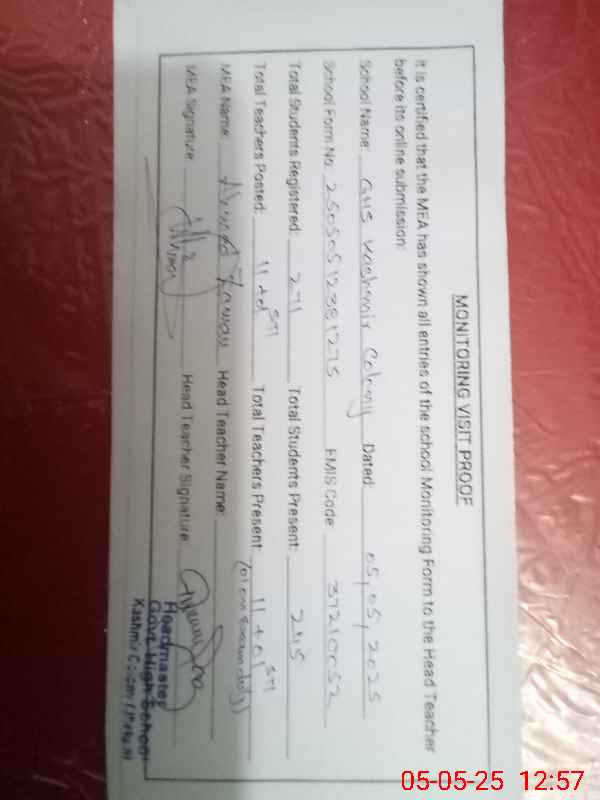 MONITORING VISIT PROOF
It is certified that the MEA has shown all entries of the school Monitoring Form to the Head Teacher
before its online submission:
School Name: GHS Kashmir Colony Dated: 05,05,2025
School Form No. 25050512381275 EMIS Code: 37210052
Total Students Registered: 271 Total Students Present: 245
Total Teachers Posted: 11+01 STI Total Teachers Present: 11+01 STI
(01 on Exam duty)
MEA Name: Ahmed Head Teacher Name:
MEA Signature: Head Teacher Signature:
Headmaster
Govt. High School
Kashmir Colony
05-05-25 12:57